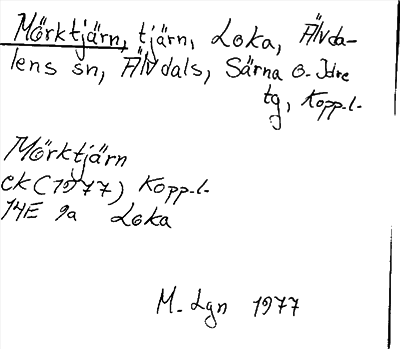 Mörktjärn, tjärn, Loka, Älvda-
lens sn, Älvdals, Särna o. Idre
tg, Kopp.l.
Mörktjärn
EK (1977) Kopp.l.
14E 9a Loka
M. Lgn 1977